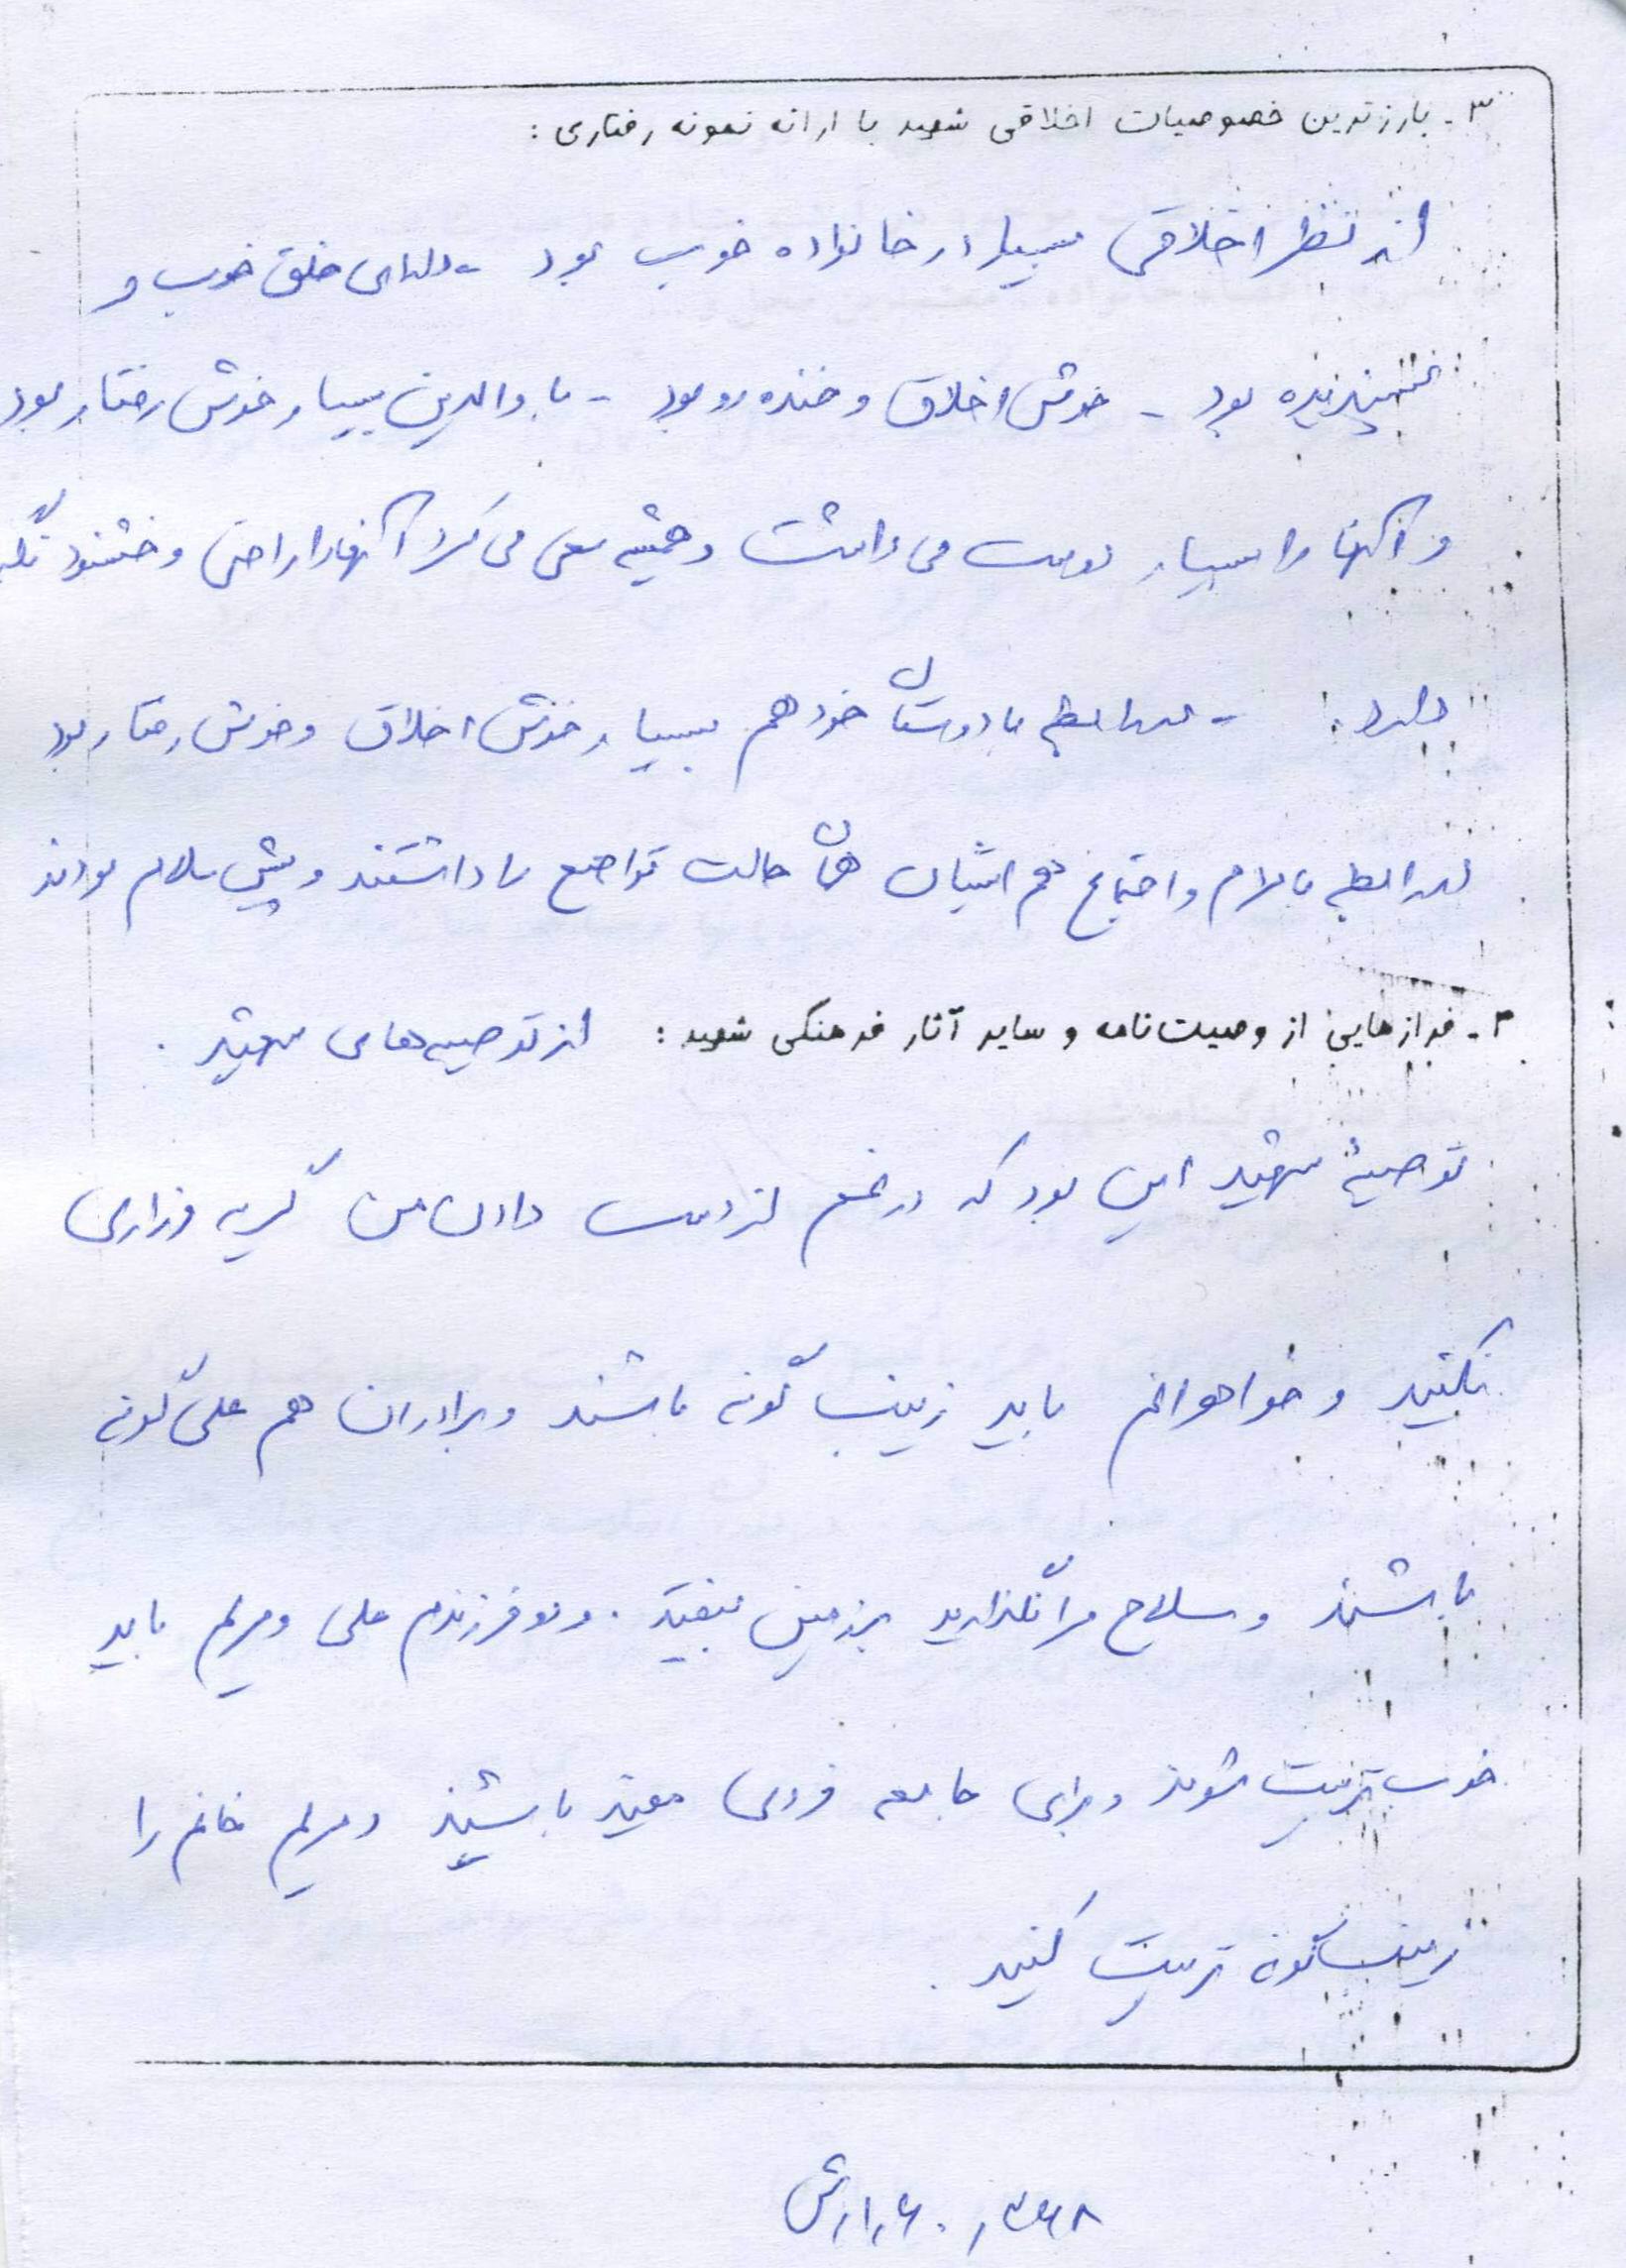 ۳- بارزترین خصوصیات اخلاقی شهید با ارائه نمونه رفتاری:
از نظر اخلاقی بسیار در خانواده خوب بود - دارای خلق خوب و
پسندیده بود - خوش اخلاق و خنده رو بود - با والدین بسیار خوش رفتار بود
و آنها را بسیار دوست می داشت و همیشه سعی می کرد آنها را راضی و خشنود نگه
دارد. - در رابطه با دوستان خود هم بسیار خوش اخلاق و خوش رفتار بود
در رابطه با مردم و اجتماع هم ایشان همان حالت تواضع را داشتند و پیش سلام بودند
۴- فرازهایی از وصیت‌نامه و سایر آثار فرهنگی شهید: از توصیه‌های شهید.
توصیهٔ شهید این بود که در غم از دست دادن من گریه و زاری
نکنید و خواهرانم باید زینب گونه باشند و برادران هم علی گونه
باشند و سلاح مرا نگذارید بر زمین بیفتد. و دو فرزندم علی و مریم باید
خوب تربیت شوند و برای جامعه فردی مفید باشند و مریم خانم را
زینب گونه تربیت کنید.